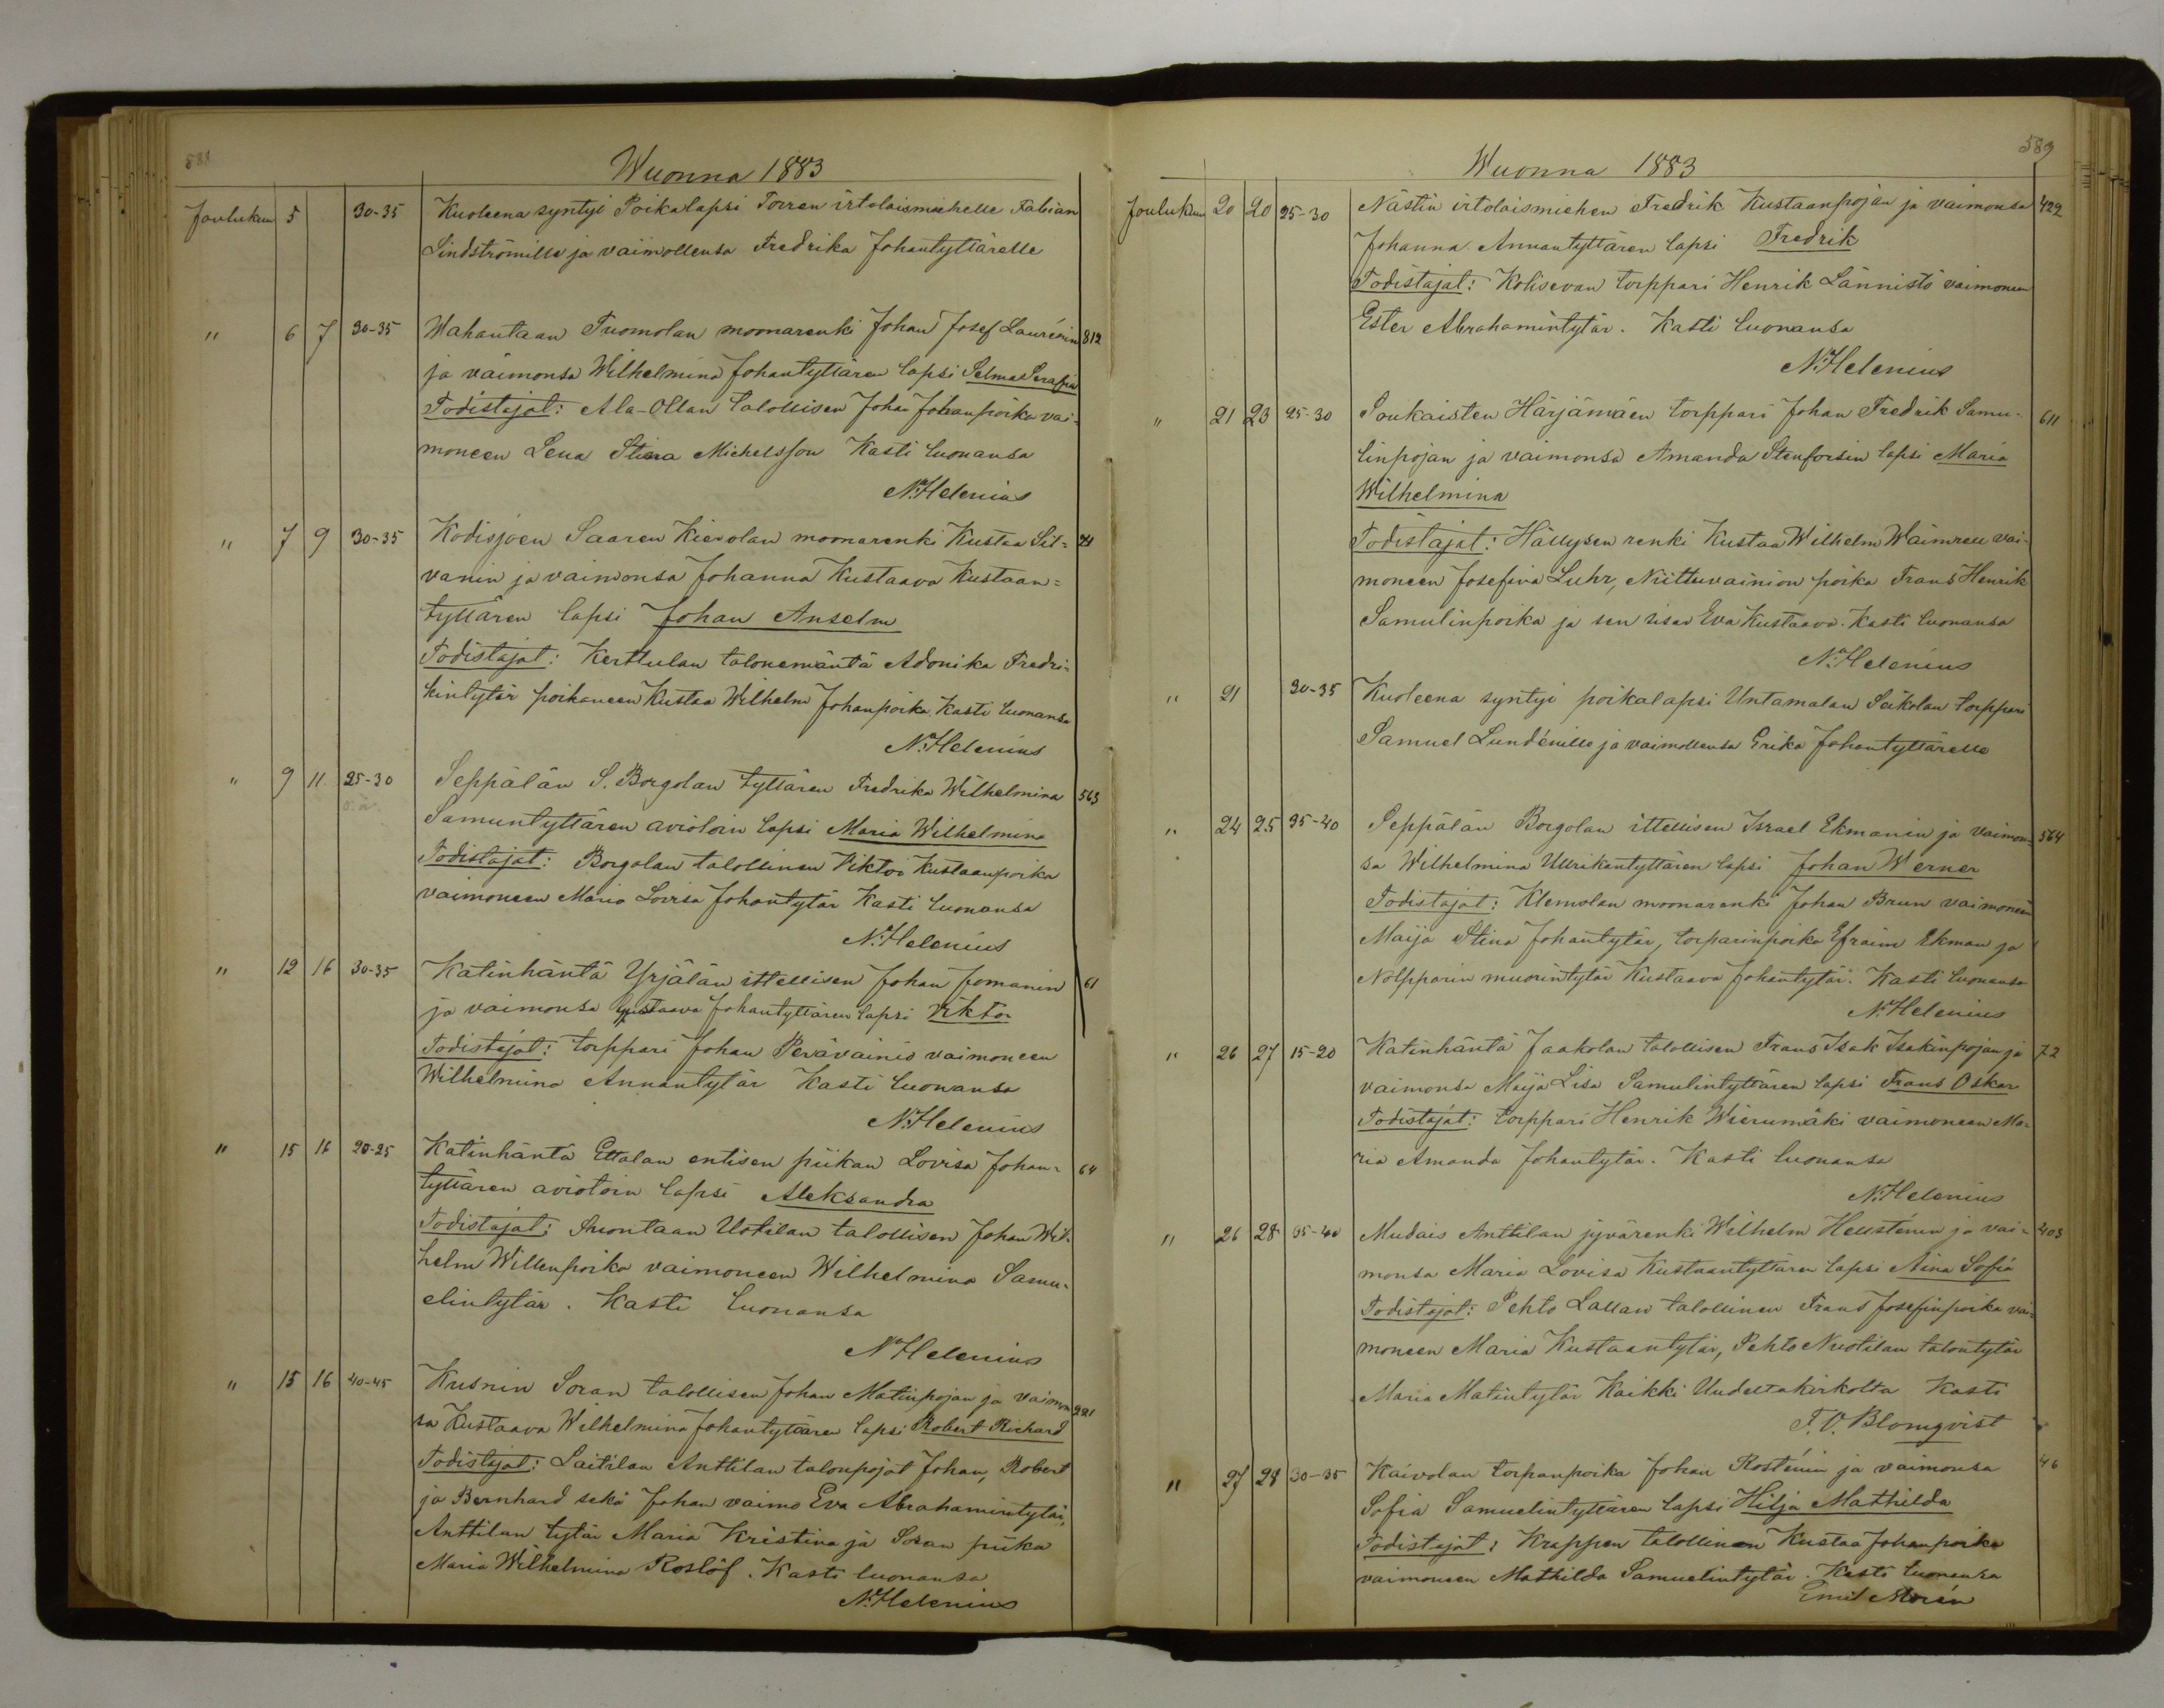 588
Wuonna 1883
Joulukuu 5 30-35 Kuoleena syntyi Poikalapsi Torren irtolaismiehelle Fabian
Lindströmille ja vaimollensa Fredrika Johantyttärelle
" 6 7 30-35 Wahantaan Tuomolan moonarenki Johan Josef Laurénin 812
ja vaimonsa Wilhelmina Johantyttären lapsi Selma Serafia
Todistajat: Ala-Ollan talollisen Johan Johanpoika vai-
moneen Lena Stina Michelsson Kasti luonansa
N. Helenius
" 7 9 30-35 Kodisjoen Saaren Kierolan moonarenki Kustaa Sil=
vanin ja vaimonsa Johanna Kustaava Kustaan=
tyttären lapsi Johan Anselm
Todistajat: Kerttulan talonemäntä Adonika Fredri-
kintytär poikaneen Kustaa Wilhelm Johanpoika. Kasti luonansa
N. Helenius
" 9 11 25-30 Seppälän S. Borgolan tyttären Fredrika Wilhelmina 563
Samuntyttären aviotoin lapsi Maria Wilhelmina
Todistajat: Borgolan talollinen Viktor Kustaanpoika
vaimoneen Maria Lovisa Johantytär Kasti luonansa
N. Helenius
" 12 16 30-35 Katinhäntä Yrjälän ittellisen Johan Jomanin 61
ja vaimonsa Gustaava Johantyttären lapsi Viktor
Todistajat: torppari Johan Perävainio vaimoneen
Wilhelmina Annantytär Kasti luonansa
N. Helenius
" 15 16 20-25 Katinhäntä Ettalan entisen piikan Lovisa Johan- 64
tyttären aviotoin lapsi Aleksandra
Todistajat: Uotilan talollisen Johan Wil-
helm Willenpoika vaimoneen Wilhelmina Samu-
elintytär. Kasti luonansa
N. Helenius
" 15 16 40-45 Kusnin Soran talollisen Johan Matinpojan ja vaimon 221
sa Kustaava Wilhelmina Johantyttären lapsi Robert Richard
Todistajat: Laitilan Anttilan talonpojat Johan, Robert
ja Bernhard sekä Johan vaimo Eva Abrahamintytär,
Anttilan tytär Maria Kristina ja Soran piika
Maria Wilhelmina Roslöf. Kasti luonansa
N. Helenius
589
Wuonna 1883
Joulukuu 20 20 25-30 Nästin irtolaismiehen Fredrik Kustaanpojan ja vaimonsa 422
Johanna Annantyttären lapsi Fredrik
Todistajat: Kolisevan torppari Henrik Lännistö vaimoneen
Ester Abrahamintytär. Kasti luonansa
N. Helenius
" 21 23 25-30 Soukaisten Härjämäen torppari Johan Fredrik Samu- 611
linpojan ja vaimonsa Amanda Stenforsin lapsi Maria
Wilhelmina
Todistajat: Hällysen renki Kustaa Wilhelm vai-
moneen Josefina Luhr, Niittuvainion poika Frans Henrik
Samulinpoika ja sen sisar Eva Kustaava. Kasti luonansa
N. Helenius
" 21 30-35 Kuoleena syntyi poikalapsi Untamalan Seikolan torppari
Samuel Lundénille ja vaimollensa Erika Johantyttärelle
" 24 25 35-40 Seppälän Borgolan ittellisen Israel Ekmanin ja vaimon- 564
sa Wilhelmina Ullrikantyttären lapsi Johan Werner
Todistajat: Klemolan moonarenki Johan Brun vaimoneen
Maija Stina Johantytär, torparinpoika Efraim Ekman ja
Nolpparin muorintytär Kustaava Johantytär. Kasti luonansa
N. Helenius
" 26 27 15-20 Katinhäntä Jaakolan talollisen Frans Isak Isakinpojan ja 72
vaimonsa Maija Lisa Samulintyttären lapsi Frans Oskar
Todistajat: torppari Henrik Wierumäki vaimoneen Ma-
ria Amanda Johantytär. Kasti luonansa
N. Helenius
" 26 28 35-40 Mudais Anttilan jyvärenki Wilhelm Hellsténin ja vai- 403
monsa Maria Lovisa Kustaantyttären lapsi Aina Sofia
Todistajat: Pehto Lallan talollinen Frans Josefinpoika vai-
moneen Maria Kustaantytär, Pehto Nuotilan talontytär
Maria Matintytär Kaikki Uudeltakirkolta Kasti
F. O. Blomqvist
" 27 28 30-35 Kaivolan torpanpoika Johan Rosténin ja vaimonsa 46
Sofia Samuelintyttären lapsi Hilja Mathilda
Todistajat: Krappen talollinen Kustaa Johanpoika
vaimoneen Mathilda Samuelintytär. Kasti luonansa
Emil Morén